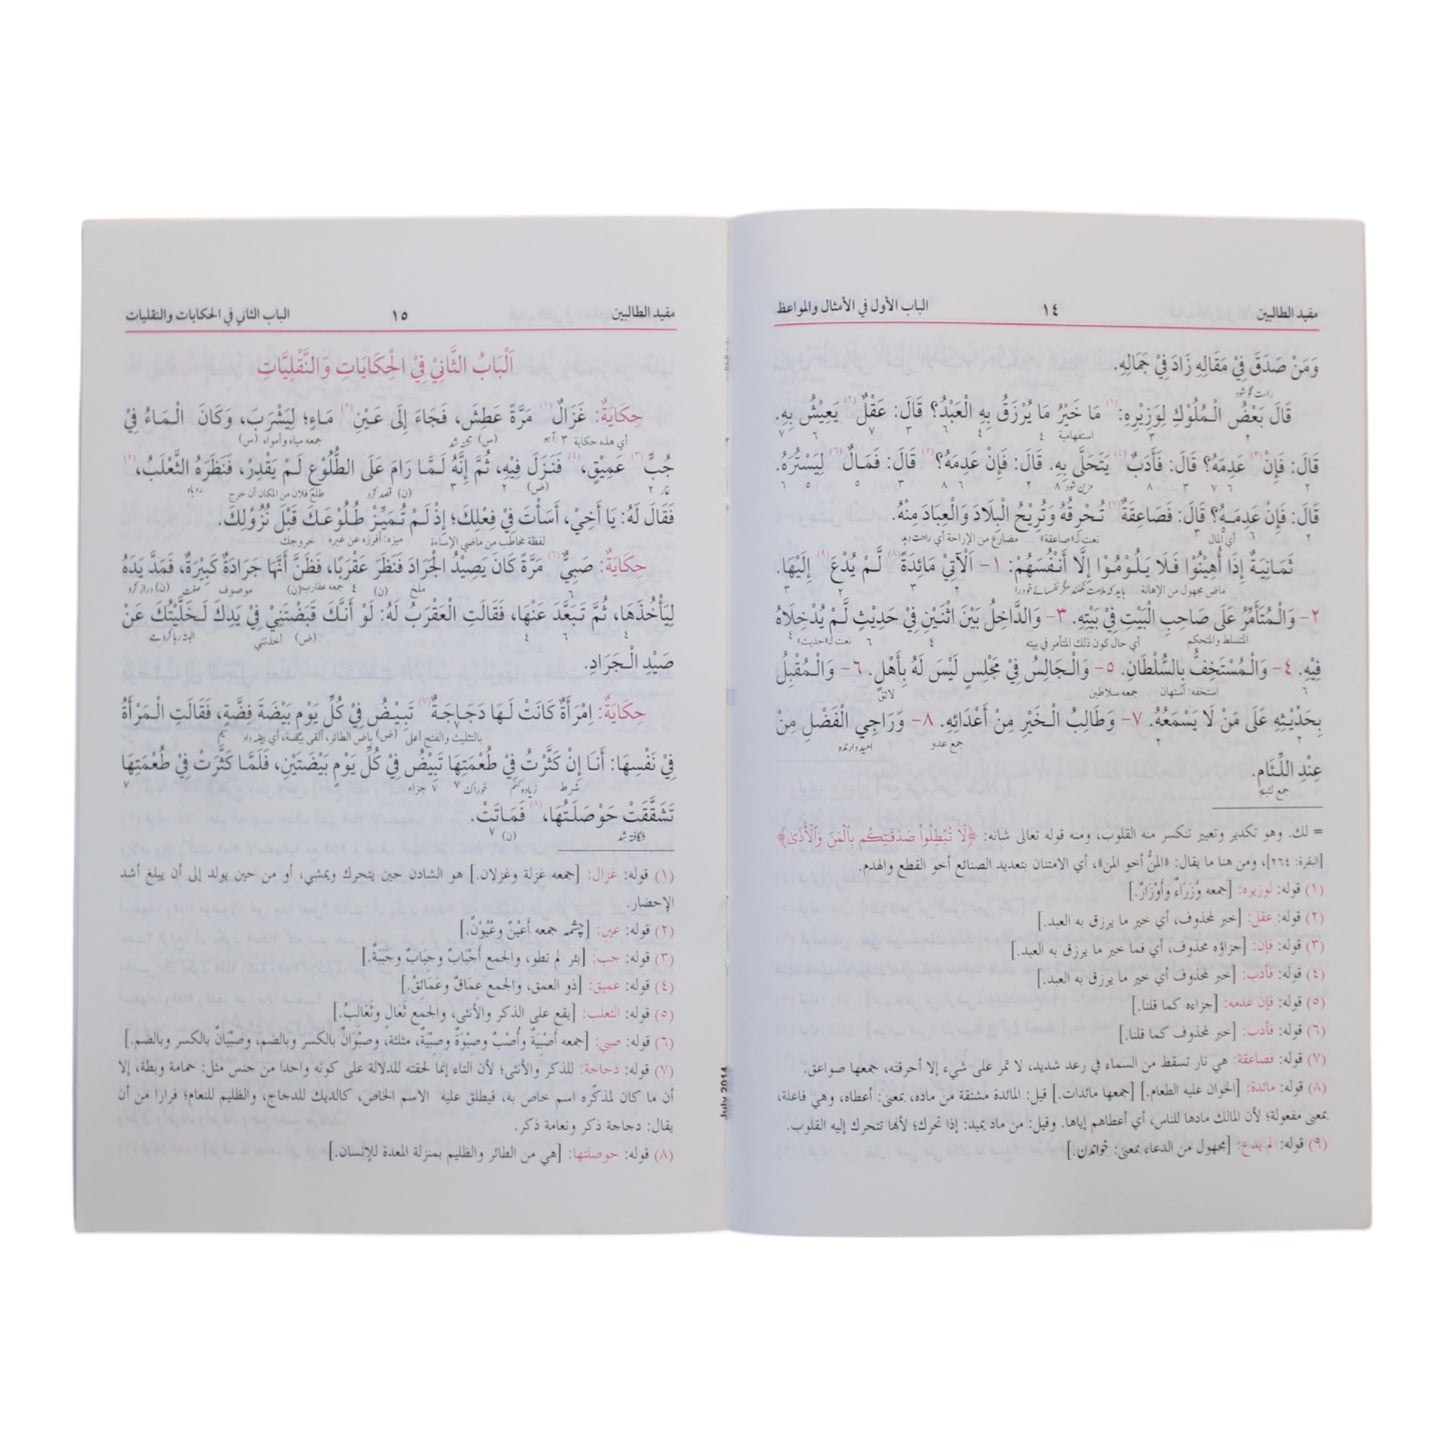 مفيد الطالبين ١٤ الباب الأول في الأمثال والمواعظ
وَمَنْ صَدَقَ فِيْ مَقَالِهِ زَادَ فِيْ جَمَالِهِ.
قَالَ بَعْضُ الْمُلُوْكِ لِوَزِيْرِهِ:(١) مَا خَيْرُ مَا يُرْزَقُ بِهِ الْعَبْدُ؟ قَالَ: عَقْلٌ(٢) يَعِيْشُ بِهِ.
استفهامية
قَالَ: فَإِنْ(٣) عَدِمَهُ؟ قَالَ: فَأَدَبٌ(٤) يَتَحَلَّى بِهِ. قَالَ: فَإِنْ عَدِمَهُ؟(٥) قَالَ: فَمَالٌ(٦) لِيَسْتُرَهُ.
قَالَ: فَإِنْ عَدِمَهُ؟ قَالَ: فَصَاعِقَةٌ(٧) تُحْرِقُهُ وَتُرِيْحُ الْبِلَادَ وَالْعِبَادَ مِنْهُ.
أي المال نعت لـ«صاعقة» مضارع من الإراحة أي
ثَمَانِيَةٌ إِذَا أُهِيْنُوْا فَلَا يَلُوْمُوْا إِلَّا أَنْفُسَهُمْ: ١- اَلْآتِيْ مَائِدَةً(٨) لَمْ يُدْعَ(٩) إِلَيْهَا.
ماض مجهول من الإهانة
٢- وَالْمُتَأَمِّرُ عَلَى صَاحِبِ الْبَيْتِ فِيْ بَيْتِهِ. ٣- وَالدَّاخِلُ بَيْنَ اثْنَيْنِ فِيْ حَدِيْثٍ لَمْ يُدْخِلَاهُ
المتسلط والمتحكم أي حال كون ذلك المتأمر في بيته نعت لـ«حديث»
فِيْهِ. ٤- وَالْمُسْتَخِفُّ بِالسُّلْطَانِ. ٥- وَالْجَالِسُ فِيْ مَجْلِسٍ لَيْسَ لَهُ بِأَهْلٍ. ٦- وَالْمُقْبِلُ
استخفه: استهان جمعه سلاطين لائق
بِحَدِيْثِهِ عَلَى مَنْ لَا يَسْمَعُهُ. ٧- وَطَالِبُ الْخَيْرِ مِنْ أَعْدَائِهِ. ٨- وَرَاجِي الْفَضْلِ مِنْ
جمع عدو
عِنْدِ اللِّئَامِ.
جمع لئيم
= لك. وهو تكدير وتعيير تنكسر منه القلوب، ومنه قوله تعالى شانه: ﴿لَا تُبْطِلُوا صَدَقَتِكُم بِالْمَنِّ وَالْأَذَى﴾
[البقرة: ٢٦٤]، ومن هنا ما يقال: «المنُّ أخو المن»، أي الامتنان بتعديد الصنائع أخو القطع والهدم.
(١) قوله: لوزيره: [جمعه وُزَرَاءُ وأَوْزَارٌ.]
(٢) قوله: عقل: [خبر لمحذوف، أي خير ما يرزق به العبد.]
(٣) قوله: فإن: [جزاؤه محذوف، أي فما خير ما يرزق به العبد.]
(٤) قوله: فأدب: [خبر لمحذوف أي خير ما يرزق به العبد.]
(٥) قوله: فإن عدمه: [جزاءه كما قلنا.]
(٦) قوله: فأدب: [خبر لمحذوف كما قلنا.]
(٧) قوله: فصاعقة: هي نار تسقط من السماء في رعد شديد، لا تمر على شيء إلا أحرقته، جمعها صواعق.
(٨) قوله: مائدة: [الخوان عليه الطعام.] [جمعها مائدات.] قيل: المائدة مشتقة من ماده، بمعنى: أعطاه، وهي فاعلة،
بمعنى مفعولة؛ لأن المالك مادها للناس، أي أعطاهم إياها. وقيل: من ماد يميد: إذا تحرك؛ لأنها تتحرك إليه القلوب.
(٩) قوله: لم يدع: [مجهول من الدعاء بمعنى: خواندن.]
مفيد الطالبين ١٥ الباب الثاني في الحكايات والنقليات
اَلْبَابُ الثَّانِيْ فِيْ الْحِكَايَاتِ وَالنَّقْلِيَّاتِ
حِكَايَةٌ: غَزَالٌ(١) مَرَّةً عَطِشَ، فَجَاءَ إِلَى عَيْنِ(٢) مَاءٍ؛ لِيَشْرَبَ، وَكَانَ الْمَاءُ فِيْ
أي هذه حكاية ٣ آہو (س) جمعه مياه وأمواه (س)
جُبٍّ(٣) عَمِيْقٍ،(٤) فَنَزَلَ فِيْهِ، ثُمَّ إِنَّهُ لَمَّا رَامَ عَلَى الطُّلُوْعِ لَمْ يَقْدِرْ، فَنَظَرَهُ الثَّعْلَبُ،(٥)
(ض) (ن) طلع فلان من المكان أن خرج
فَقَالَ لَهُ: يَا أَخِيْ، أَسَأْتَ فِيْ فِعْلِكَ؛ إِذْ لَمْ تُمَيِّزْ طُلُوْعَكَ قَبْلَ نُزُوْلِكَ.
لفظة مخاطب من ماضي الإساءة ميزه: أفرزه عن غيره خروجك
حِكَايَةٌ: صَبِيٌّ(٦) مَرَّةً كَانَ يَصِيْدُ الْجَرَادَ فَنَظَرَ عَقْرَبًا، فَظَنَّ أَنَّهَا جَرَادَةٌ كَبِيْرَةٌ، فَمَدَّ يَدَهُ
ملخ (ن) جمعه عقارب (ن) موصوف صفت (ن)
لِيَأْخُذَهَا، ثُمَّ تَبَعَّدَ عَنْهَا، فَقَالَتِ الْعَقْرَبُ لَهُ: لَوْ أَنَّكَ قَبَضْتَنِيْ فِيْ يَدِكَ لَخَلَّيْتُكَ عَنْ
(ض) أخذتني
صَيْدِ الْجَرَادِ.
حِكَايَةٌ: اِمْرَأَةٌ كَانَتْ لَهَا دَجَاجَةٌ(٧) تَبِيْضُ فِيْ كُلِّ يَوْمٍ بَيْضَةَ فِضَّةٍ، فَقَالَتِ الْمَرْأَةُ
بالتثليث والفتح أعلى (ض) باض الطائر: ألقى بيضة، أي
فِيْ نَفْسِهَا: أَنَا إِنْ كَثَّرْتُ فِيْ طُعْمَتِهَا تَبِيْضُ فِيْ كُلِّ يَوْمٍ بَيْضَتَيْنِ، فَلَمَّا كَثَّرَتْ فِيْ طُعْمَتِهَا
شرط خوراك ٧ جزاء ٧
تَشَقَّقَتْ حَوْصَلَتُهَا،(٨) فَمَاتَتْ.
(ن) ٧
(١) قوله: غزال: [جمعه غزلة وغزلان.] هو الشادن حين يتحرك ويمشي، أو من حين يولد إلى أن يبلغ أشد
الإحضار.
(٢) قوله: عين: [چشمہ جمعه أَعْيُنٌ وعُيُوْنٌ.]
(٣) قوله: جب: [بئر لم تطو، والجمع أَجْبَابٌ وجِبَابٌ وجَبَبَةٌ.]
(٤) قوله: عميق: [ذو العمق، والجمع عِمَاقٌ وعَمَائِقُ.]
(٥) قوله: الثعلب: [يقع على الذكر والأنثى، والجمع ثَعَالٍ وثَعَالِبُ.]
(٦) قوله: صبي: [جمعه أَصْبِيَةٌ وأَصْبٌ وصِبْوَةٌ وصِبْيَةٌ، مثلثة، وصِبْوَانٌ بالكسر وبالضم، وصِبْيَانٌ بالكسر وبالضم.]
(٧) قوله: دجاجة: للذكر والأنثى؛ لأن التاء إنما لحقته للدلالة على كونه واحدا من جنس مثل: حمامة وبطة، إلا
أن ما كان لمذكّره اسم خاص به، فيطلق عليه الاسم الخاص، كالديك للدجاج، والظليم للنعام؛ فرارا من أن
يقال: دجاجة ذكر ونعامة ذكر.
(٨) قوله: حوصلتها: [هي من الطائر والظليم بمنزلة المعدة للإنسان.]
July 2014